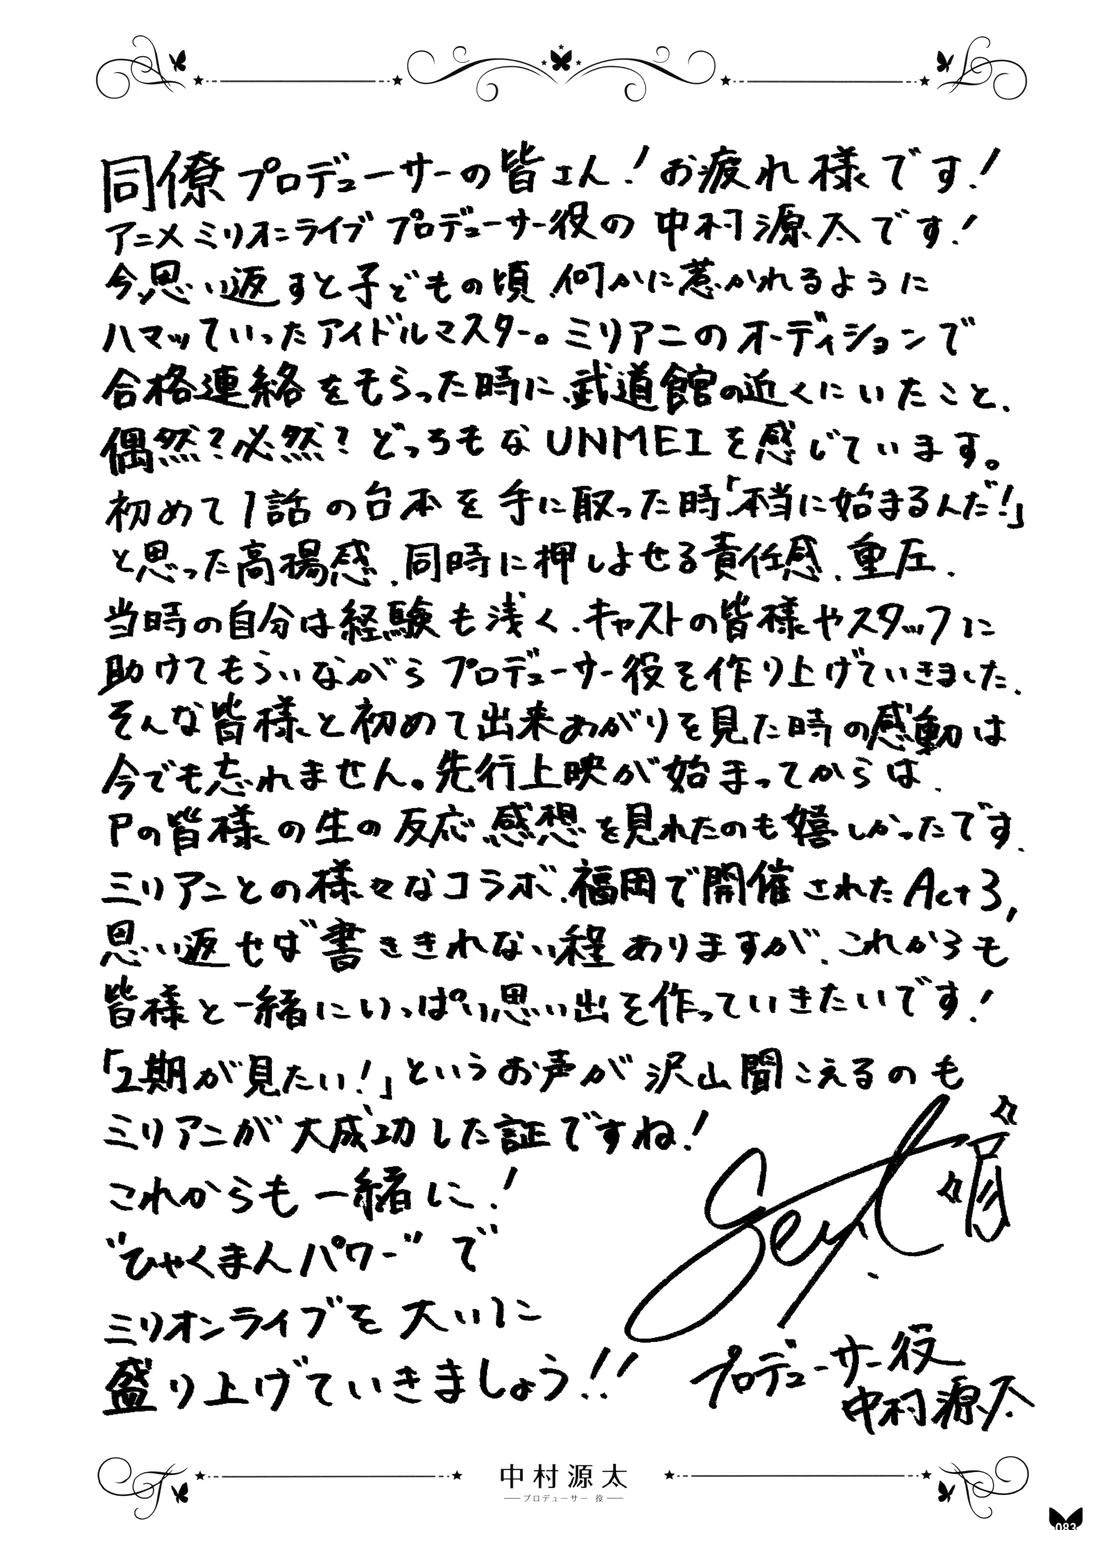 同僚プロデューサーの皆さん！お疲れ様です！
アニメミリオンライブ プロデューサー役の 中村源太です！
今、思い返すと子どもの頃、何かに惹かれるように
ハマッていったアイドルマスター。ミリアニのオーディションで
合格連絡をもらった時に、武道館の近くにいたこと、
偶然？必然？どっちもなUNMEIを感じています。
初めて1話の台本を手に取った時「本当に始まるんだ！」
と思った高揚感、同時に押しよせる責任感、重圧、
当時の自分は経験も浅く、キャストの皆様やスタッフに
助けてもらいながらプロデューサー役を作り上げていきました、
そんな皆様と初めて出来あがりを見た時の感動は
今でも忘れません。先行上映が始まってからは、
Pの皆様の生の反応、感想を見れたのも嬉しかったです、
ミリアニとの様々なコラボ、福岡で開催されたAct3,
思い返せば書ききれない程ありますが、これからも
皆様と一緒にいっぱい思い出を作っていきたいです！
「2期が見たい！」というお声が沢山聞こえるのも
ミリアニが大成功した証ですね！
これからも一緒に！
"ひゃくまんパワー"で
ミリオンライブを大いに
盛り上げていきましょう!!
プロデューサー役
中村源太
中村源太
プロデューサー 役
083